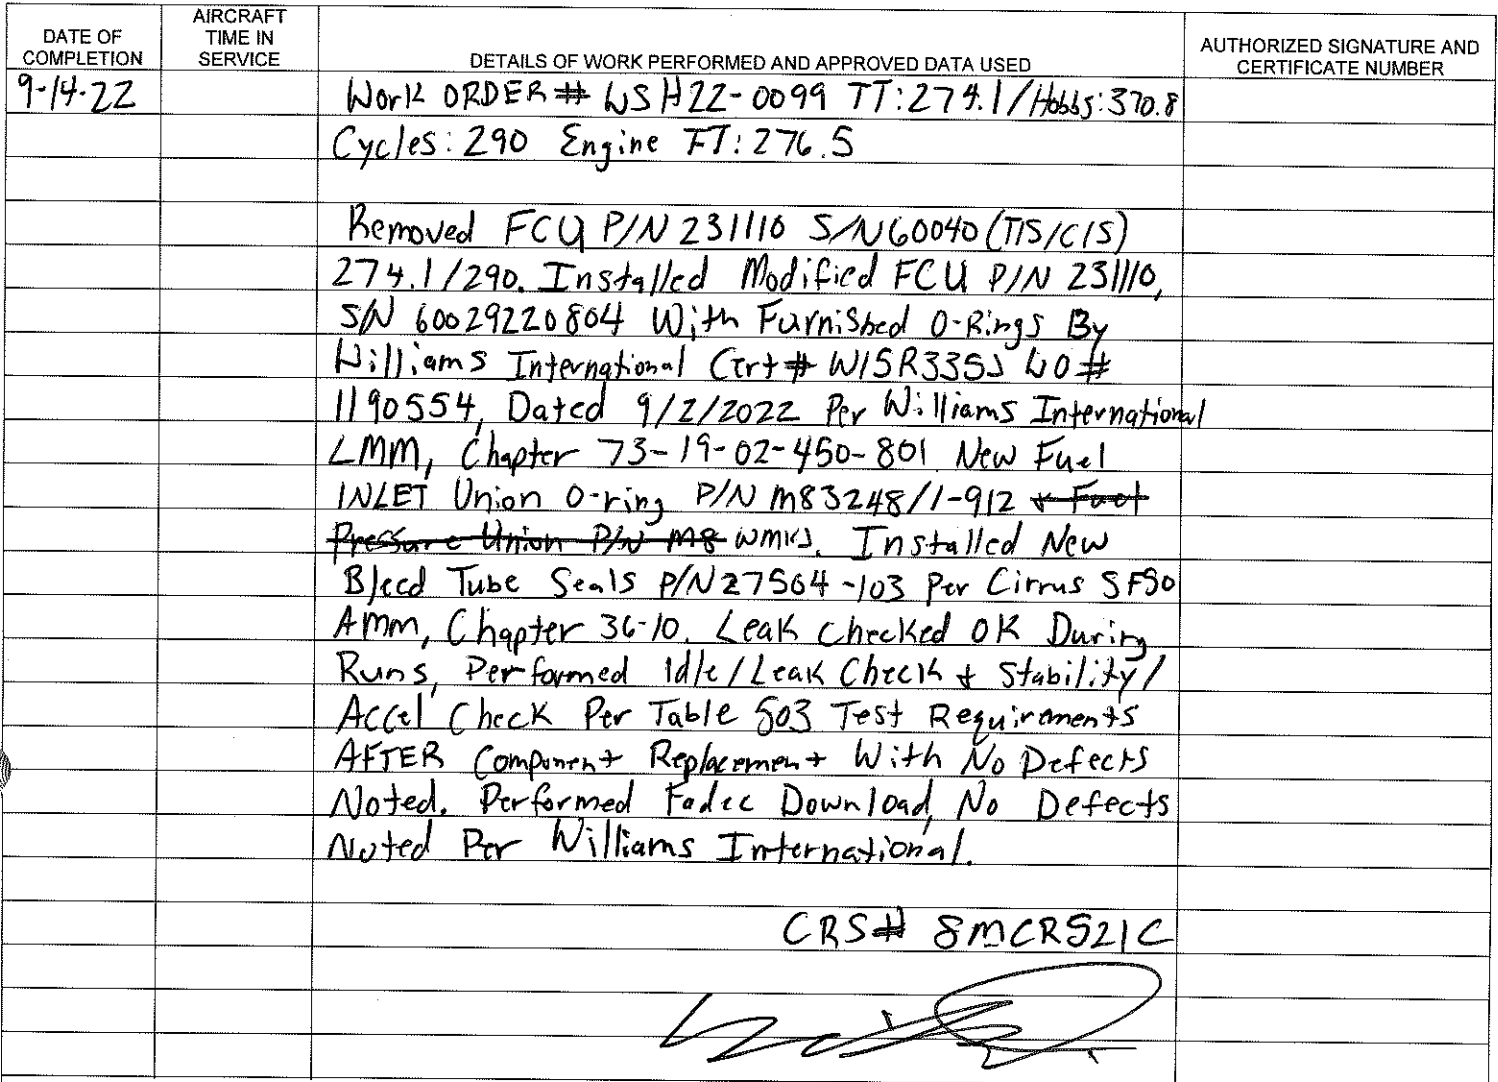 DATE OF COMPLETION
AIRCRAFT TIME IN SERVICE
DETAILS OF WORK PERFORMED AND APPROVED DATA USED
AUTHORIZED SIGNATURE AND CERTIFICATE NUMBER
9-14-22
Work ORDER# WSH22-0099 TT:274.1/Hobbs:370.8
Cycles: 290 Engine FT: 276.5
Removed FCU P/N 231110 S/N60040 (TIS/CIS)
274.1/290. Installed Modified FCU P/N 231110,
S/N 60029220804 With Furnished O-Rings By
Williams International Cert# W15R335J WO#
1190554, Dated 9/2/2022 Per Williams International
LMM, Chapter 73-19-02-450-801 New Fuel
INLET Union O-ring P/N M83248/1-912 & Fuel
Pressure Union P/N M8 Installed New
Bleed Tube Seals P/N 27564-103 Per Cirrus SF50
Amm, Chapter 36-10. Leak Checked OK During
Runs, Performed Idle/Leak Check & Stability/
Accel Check Per Table 503 Test Requirements
AFTER Component Replacement With No Defects
Noted. Performed Fadec Download, No Defects
Noted Per Williams International.
CRS# 8MCR521C